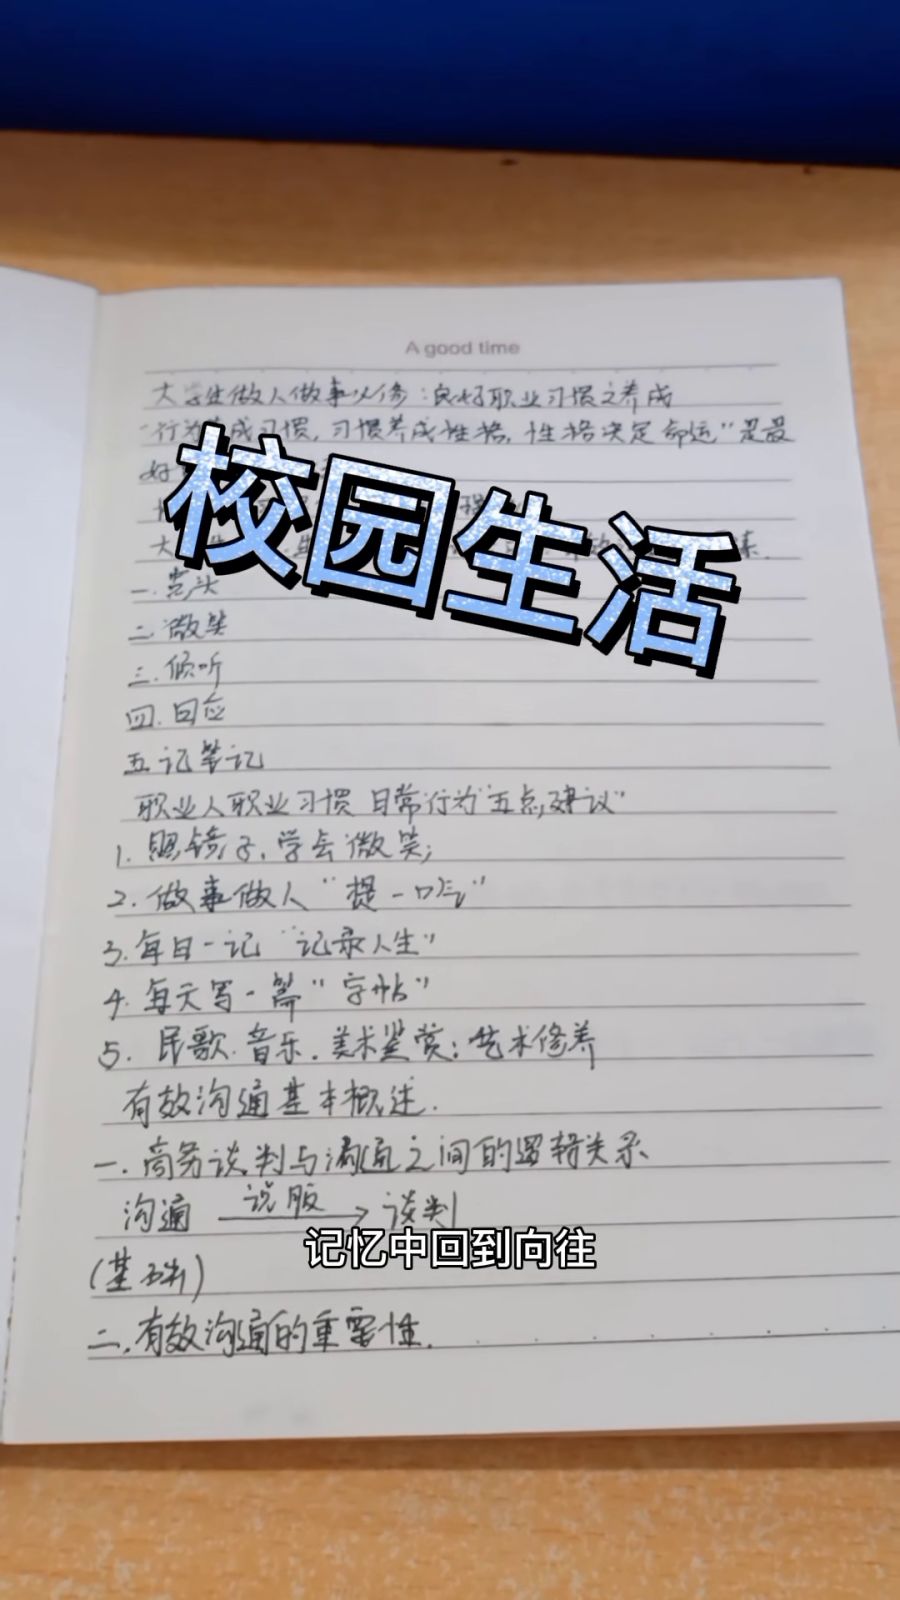 A good time
大学生做人做事必修:良好职业习惯之养成
"行为养成习惯,习惯养成性格,性格决定命运"是最
好
校园生活
大
素.
一.点头
二.微笑
三.倾听
四.回应
五.记笔记
职业人职业习惯 日常行为"五点建议"
1.照镜子,学会微笑;
2.做事做人"提一口气"
3.每日一记"记录人生"
4.每天写一篇"字帖"
5.民歌.音乐.美术鉴赏:艺术修养
有效沟通基本概述.
一.商务谈判与沟通之间的逻辑关系
沟通 说服 → 谈判
记忆中回到向往
(基础)
二.有效沟通的重要性.